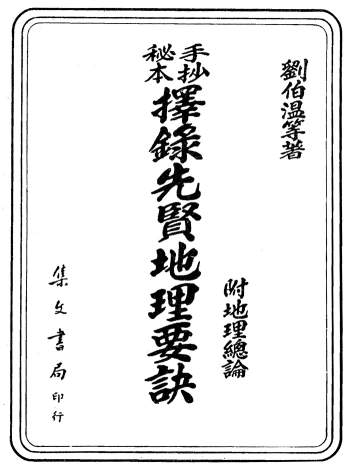 劉伯溫等著
附地理總論
手抄
秘本
擇錄先賢地理要訣
集文書局印行